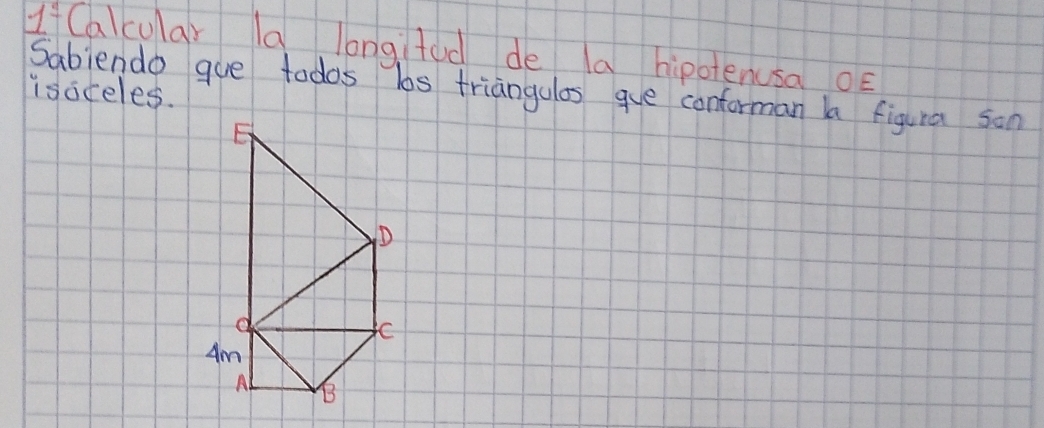 1º Calcular la longitud de la hipotenusa OE
Sabiendo que todos los triángulos que conforman la figura son
isóceles.
E
D
O
C
4m
A
B